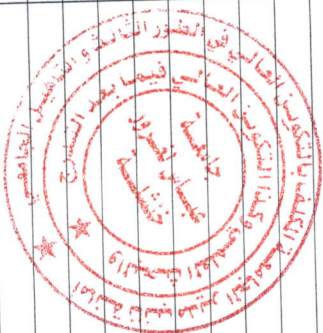 نيابة مدير الجامعة المكلفة بالتكوين العالي في الطور الثالث و التأهيل الجامعي
والبحث العلمي وكذا التكوين العالي فيما بعد التدرج
جامعة
عباس لغرور
خنشلة